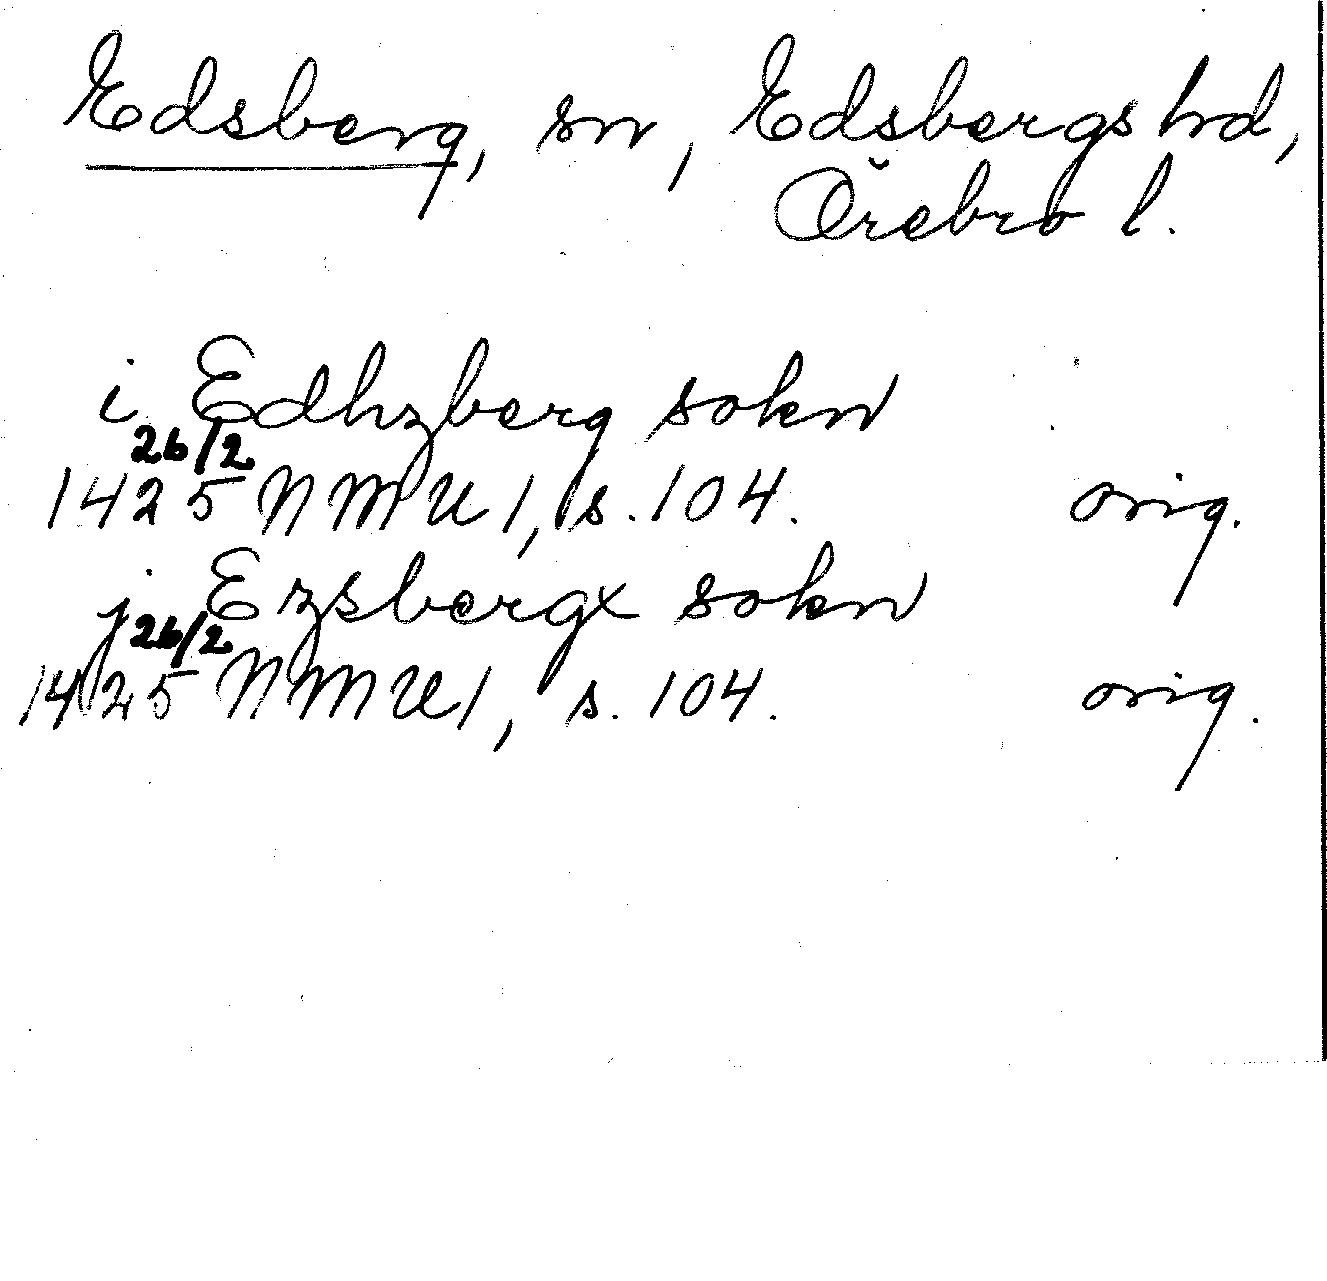 Edsberg, sn, Edsbergs hd,
Örebro l.
i Edhzberg sokn
26/2
1425 NMU 1, s. 104. orig.
j Ezsbergx sokn
26/2
1425 NMU 1, s. 104. orig.